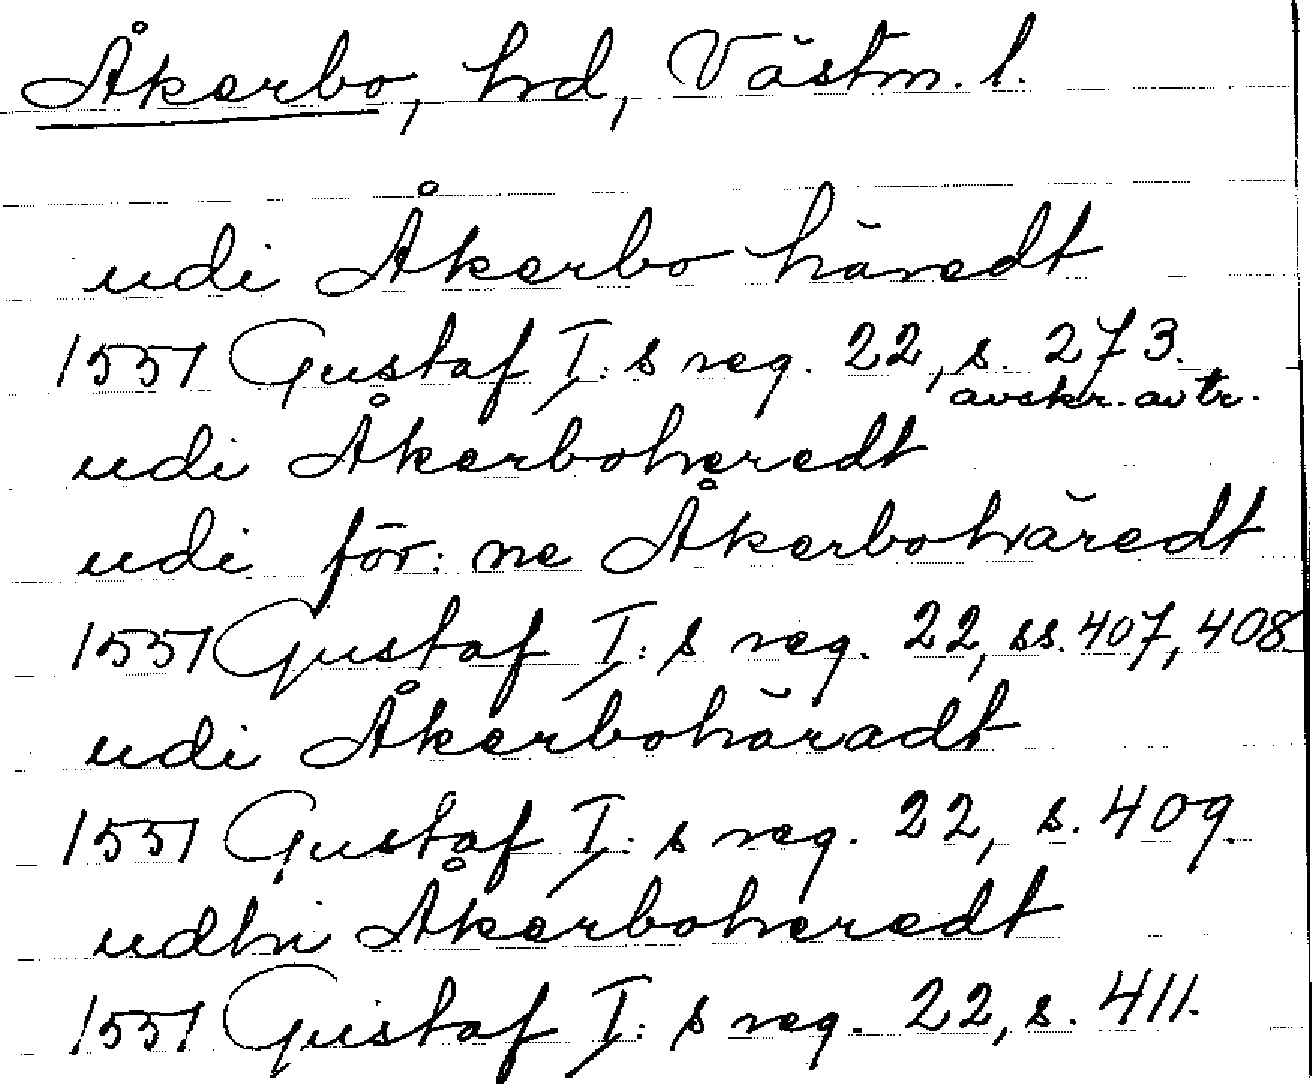 Åkerbo, hd, Västm. l.
udi Åkerbo häredt
1551 Gustaf I:s reg. 22, s. 273.
avskr. av tr.
udi Åkerboheredt
udi för:ne Åkerbohäredt
1551 Gustaf I:s reg. 22, ss. 407, 408
udi Åkerbohäradt
1551 Gustaf I:s reg. 22, s. 409.
udhi Åkerboheredt
1551 Gustaf I:s reg. 22, s. 411.